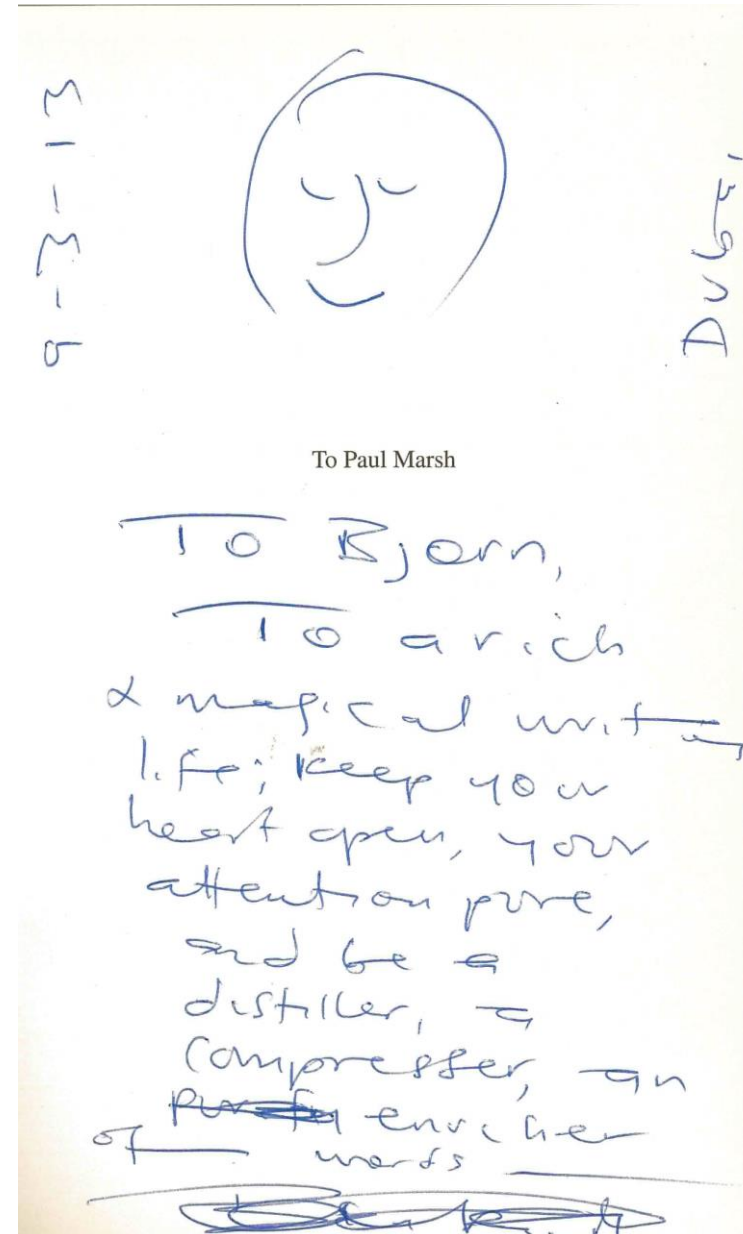 9-3-13
Dubai
To Paul Marsh
To Bjorn,
To a rich
& magical writing
life; keep your
heart open, your
attention pure,
and be a
distiller, a
compresser, an
enricher
of words